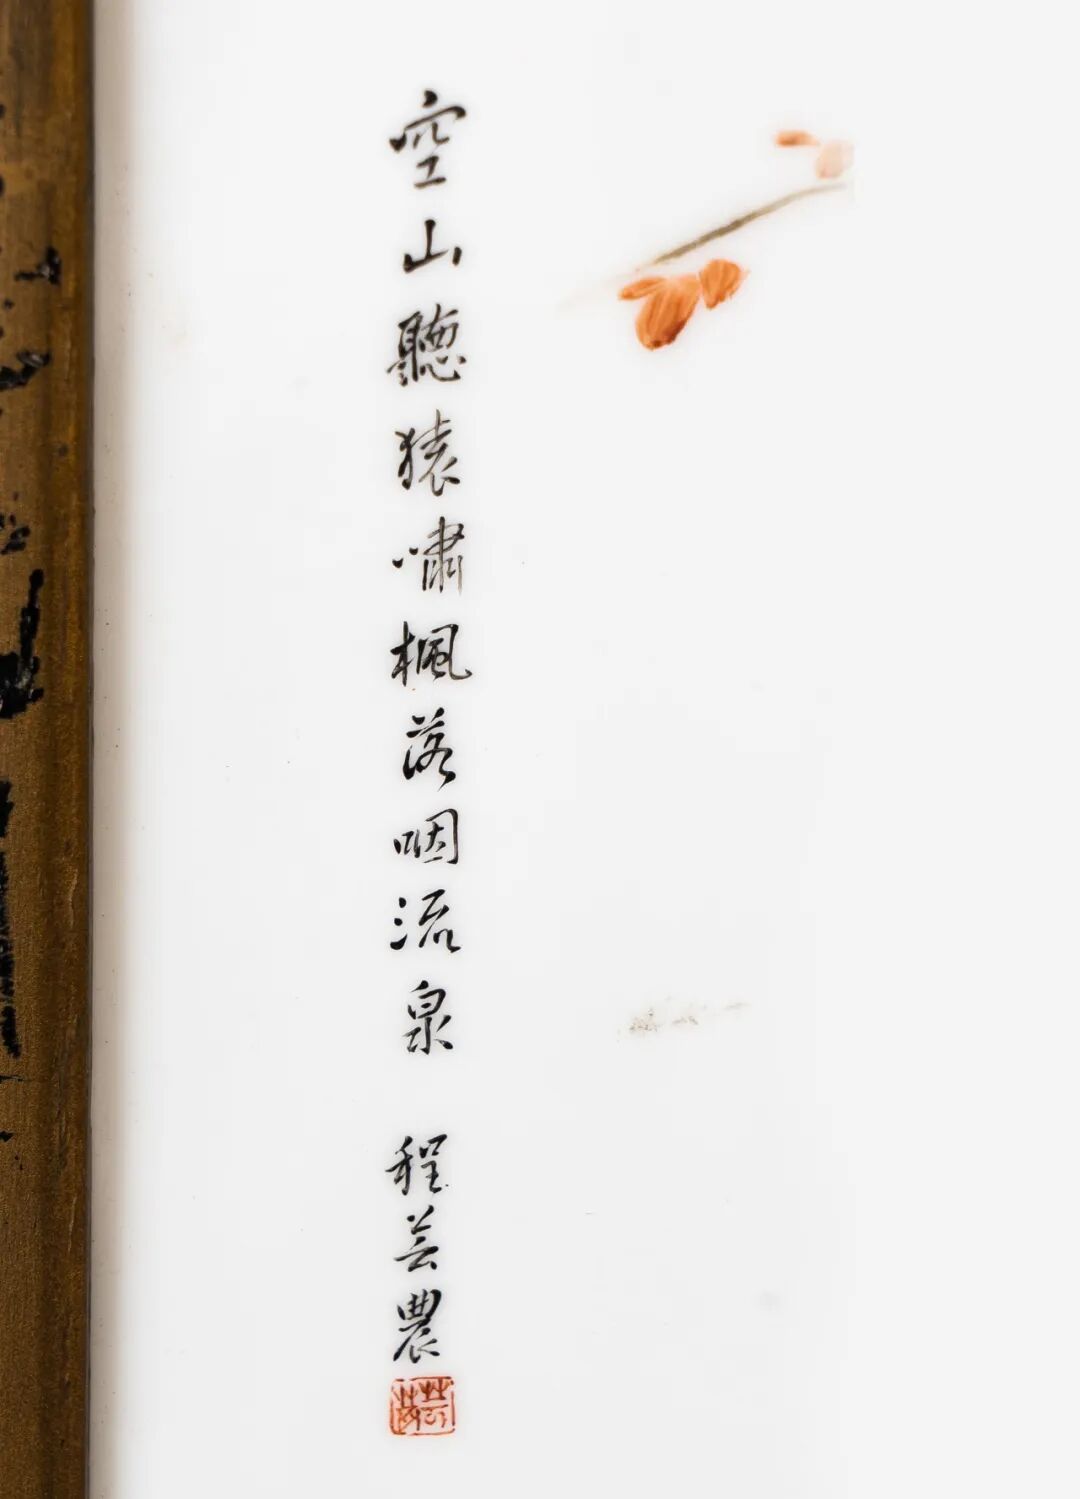 空山聽猿嘯楓落咽流泉 程芸農